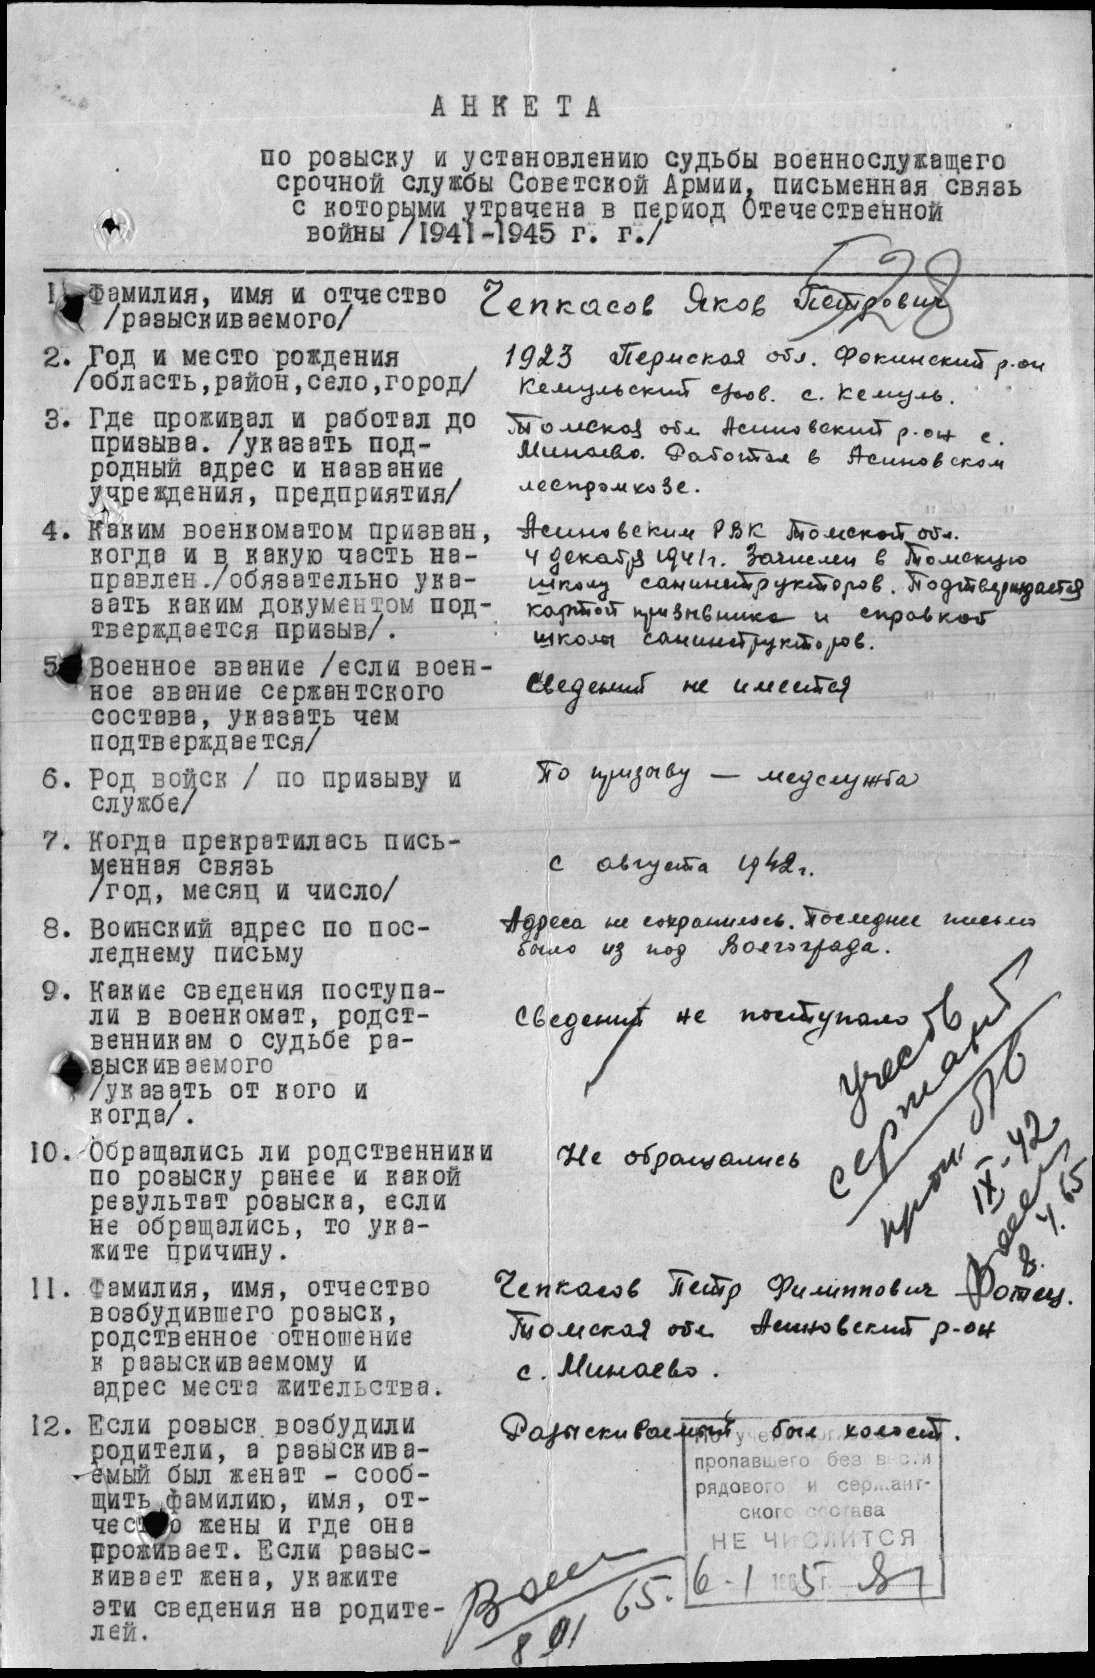 АНКЕТА
по розыску и установлению судьбы военнослужащего
срочной службы Советской Армии, письменная связь
с которыми утрачена в период Отечественной
войны /1941-1945 г. г./
528
1. Фамилия, имя и отчество
/разыскиваемого/
Чепкасов Яков Петрович
2. Год и место рождения
/область,район,село,город/
1923 Пермская обл. Фокинский р-он
Кемульский с/сов. с. Кемуль.
3. Где проживал и работал до
призыва. /указать под-
родный адрес и название
учреждения, предприятия/
Томская обл Асиновский р-он с.
Минаево. Работал в Асиновском
леспромхозе.
4. Каким военкоматом призван,
когда и в какую часть на-
правлен./обязательно ука-
зать каким документом под-
тверждается призыв/.
Асиновским РВК Томской обл.
4 декабря 1941г. Зачислен в Томскую
школу санинструкторов. Подтверждается
картой призывника и справкой
школы санинструкторов.
5. Военное звание /если воен-
ное звание сержантского
состава, указать чем
подтверждается/
Сведений не имеется
6. Род войск / по призыву и
службе/
По призыву — медслужба
7. Когда прекратилась пись-
менная связь
/год, месяц и число/
с августа 1942г.
8. Воинский адрес по пос-
леднему письму
Адреса не сохранилось. Последнее письмо
было из под Волгограда.
9. Какие сведения поступа-
ли в военкомат, родст-
венникам о судьбе ра-
зыскиваемого
/указать от кого и
когда/.
Сведений не поступало
10. Обращались ли родственники
по розыску ранее и какой
результат розыска, если
не обращались, то ука-
жите причину.
Не обращались
сержант
проп. б/в
IX-42
8.4.65
11. Фамилия, имя, отчество
возбудившего розыск,
родственное отношение
к разыскиваемому и
адрес места жительства.
Чепкасов Петр Филиппович отец.
Томская обл Асиновский р-он
с. Минаево.
12. Если розыск возбудили
родители, а разыскива-
емый был женат - сооб-
щить фамилию, имя, от-
чество жены и где она
проживает. Если разыс-
кивает жена, укажите
эти сведения на родите-
лей.
Разыскиваемый был холост.
По учету
пропавшего без вести
рядового и сержант-
ского состава
НЕ ЧИСЛИТСЯ
6-1 1965 г.
8 01 65.